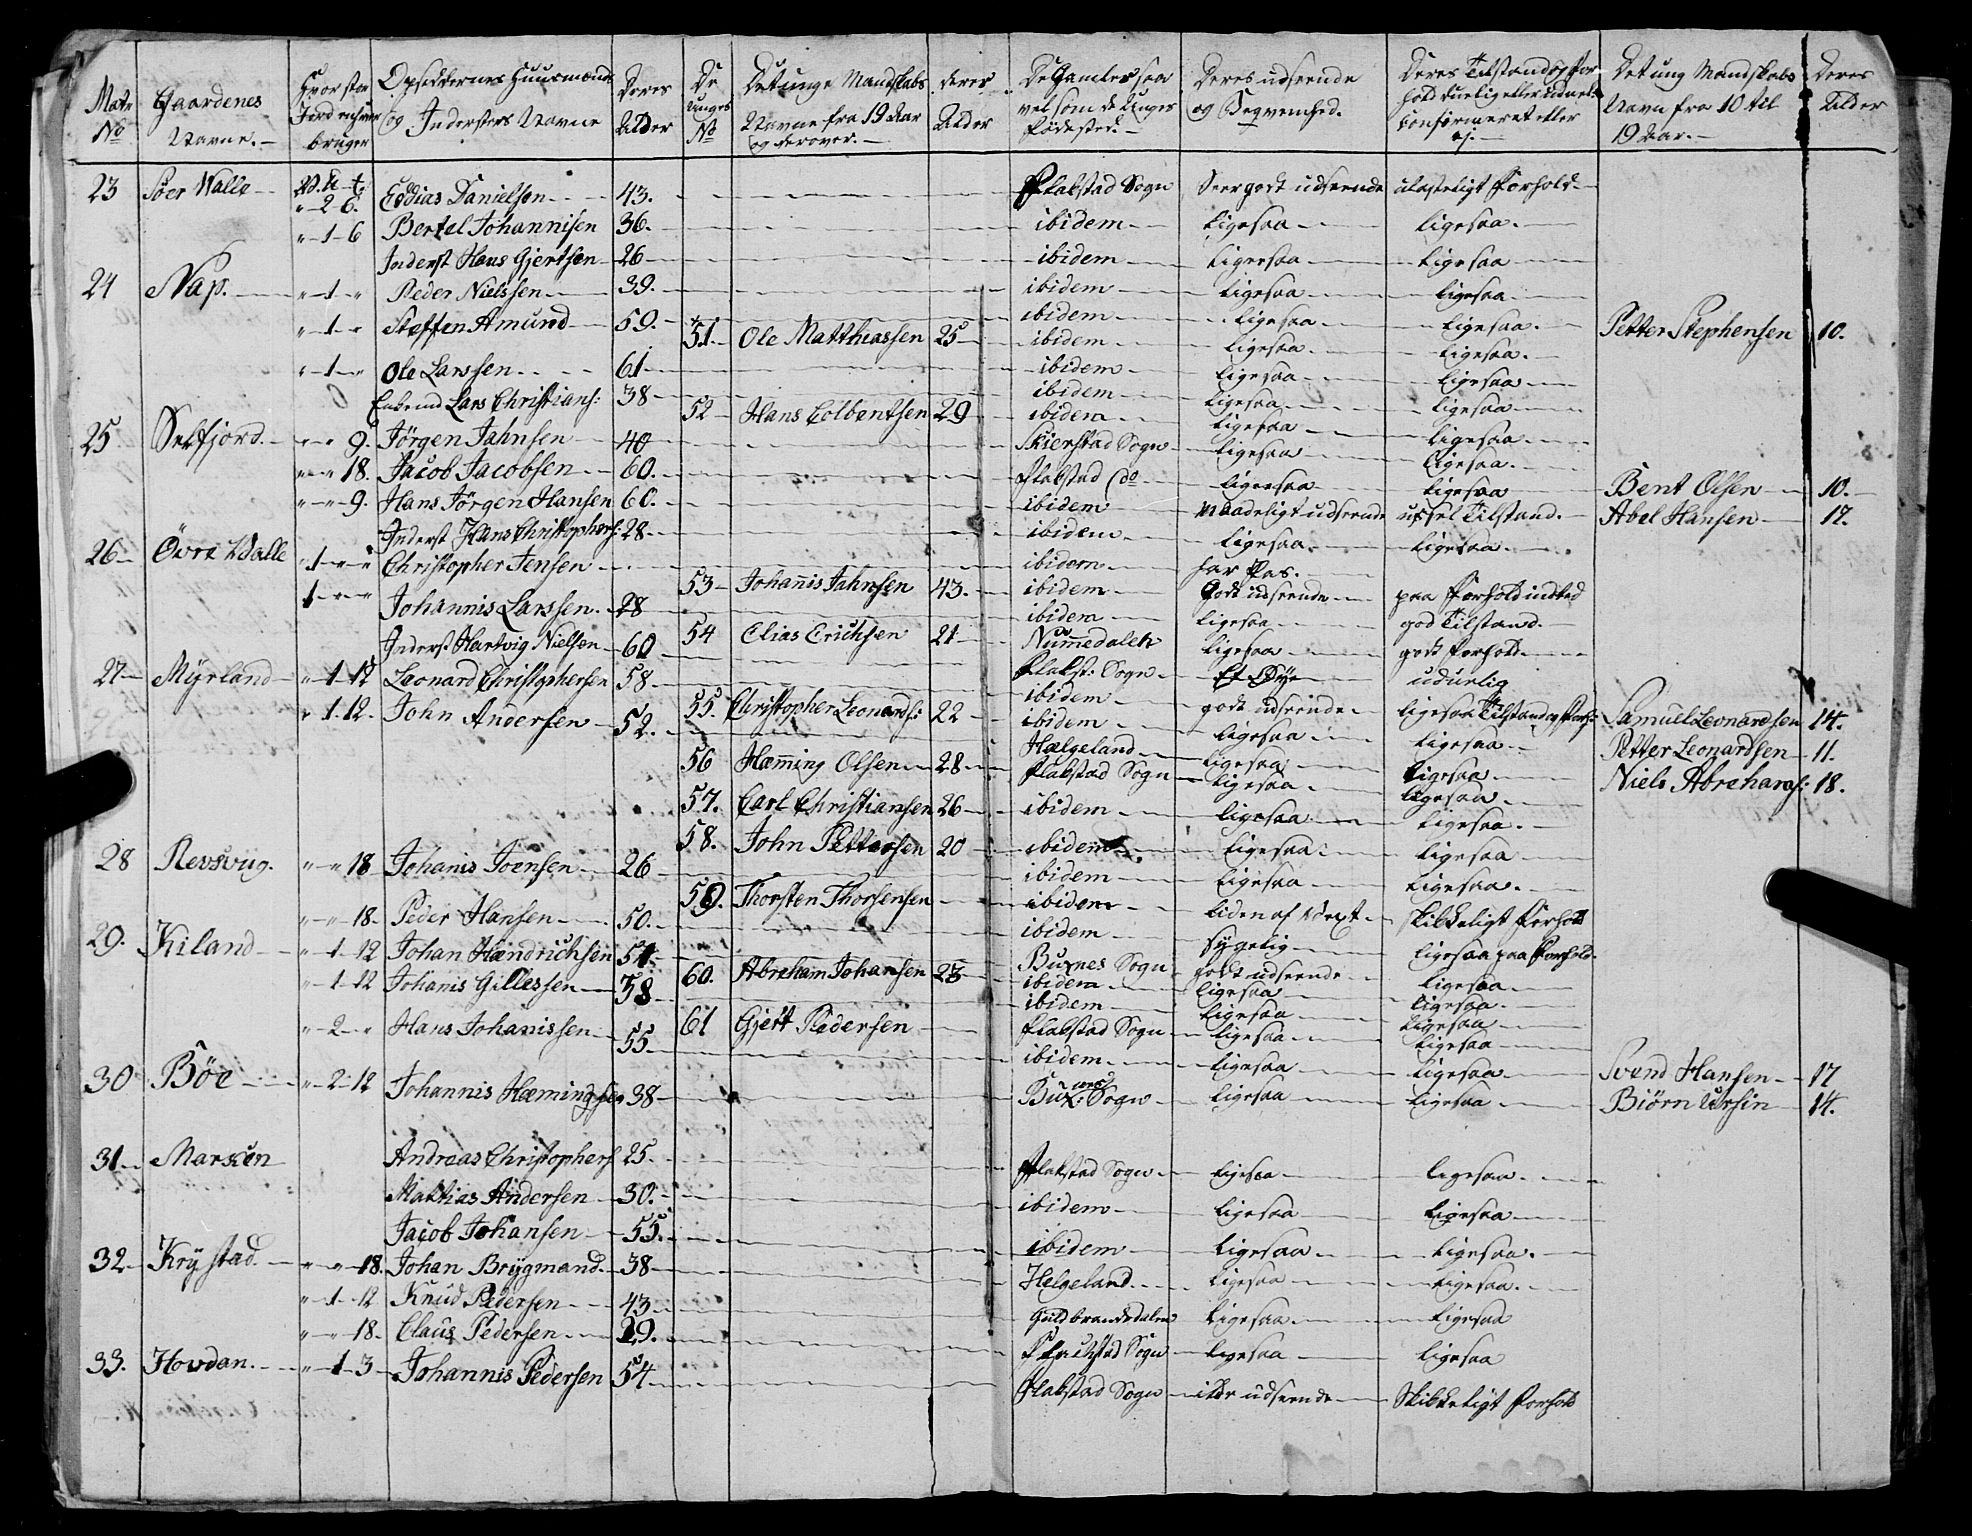 Matr No | Gaardenes Navne. | Hvor stor Jord enhver bruger | Opsiddernes Huusmænds og Inderster Navne | Deres Alder | De unges No | Det unge Mandskabs Navne fra 19 Aar og derover. | deres Alder | De Gamles saa vel som de Unges fødested. | Deres udseende og Beqvemhed. | Deres Tilstand og forhold duelig eller uduel: konfirmeret eller ej. | Det ung Mandskabs Navn fra 10 til 19 Aar. | Deres Alder
23 Söer Walle
" 2 6. Eddias Danielsen 43. Flakstad Sogn Seer godt udseende ulasteligt forhold
" 1 6 Bertel Johannisen 36. ibidem ligesaa ligesaa.
Inderst Hans Gjertsen 26 ibidem ligesaa ligesaa
24 Nap. " 1 " Peder Nielssen 39. ibidem ligesaa ligesaa
" 1 " Steffen Amund 59. ibidem ligesaa ligesaa. Petter Stephensen 10.
51. Ole Matthiassen 25 ibidem ligesaa ligesaa.
" 1 " Ole Larssen 61 ibidem ligesaa ligesaa
Lars Christians: 38 ibidem ligesaa ligesaa
52 Hans Colbentsen 29 ibidem ligesaa ligesaa
25 Selfjord. " " 9. Jörgen Jahnsen 40 Skierstad Sogn ligesaa ligesaa.
" " 18. Jacob Jacobsen 60. Flakstad do ligesaa ligesaa Bent Olsen 10.
" " 9. Hans Jörgen Hansen 60. ibidem maadeligt udseende ussel Tilstand. Abel Hansen 17.
Inderst Hans Christophers: 28 ibidem ligesaa ligesaa
26 Övre Walle 1 " " Christopher Jensen ibidem har Pas.
53 Johannis Jahnsen 43. ibidem Godt udseende paa forhold indted
1 " " Johannis Larssen. 28 ibidem ligesaa god Tilstand.
54 Elias Erichsen 21 Nummedalen ligesaa godt forhold.
Inderst Hartvig Nielsen 60 Flakst: Sogn Et Öye uduelig
27 Myrland " 1 12 Leonard Christophersen 58 ibidem godt udseende ligesaa Tilstand og forh: Samuel Leonardsen 14.
55. Christopher Leonards: 22 ibidem ligesaa ligesaa Petter Leonardsen 11.
" 1 12. John Andersen 52. Hælgeland ligesaa ligesaa Niels Abrahams: 18.
56 Hæmming Olsen 28 Flakstad Sogn ligesaa ligesaa
57. Carl Christiansen 26 ibidem ligesaa ligesaa.
58. John Pettersen 20 ibidem ligesaa ligesaa
28 Revsvug. " " 18 Johanis Joensen 26 ibidem ligesaa ligesaa.
59. Thorsten Thorsensen ibidem liden af vext skikkeligt forhold
" " 18. Peder Hansen 50. ibidem sygelig ligesaa paa forhold.
29. Kiland " 1 12 Johan Hændrichsen 51 Buxnes Sogn godt udseende ligesaa
60. Abraham Johansen 23 ibidem ligesaa ligesaa
" 1 12 Johanis Gillessen 38 ibidem ligesaa ligesaa
61 Gjert Pedersen Flakstad Sogn ligesaa ligesaa
" 2 " Hans Johanissen 55 ibidem ligesaa ligesaa Svend Hansen 17
30 Böe " 2 12 Johannis Hæmingsen 38 Bux: Sogn ligesaa ligesaa Biörn Ursin 14.
31 Marken Andreas Christophers 25. Flakstad Sogn ligesaa ligesaa
Mathias Andersen 30. ibidem ligesaa ligesaa
Jacob Johansen 55. ibidem ligesaa ligesaa.
32 Krystad " " 18. Johan Brygmand. 38 Helgeland ligesaa ligesaa.
" 1 12 Knud Pedersen 43 Guldbrandsdalen ligesaa ligesaa
" " 18. Claus Pedersen 29. Sogn ligesaa ligesaa
33. Hovdan. " 1 3 Johannis Pedersen 54 Flakstad Sogn ilde udseende Skikkeligt forhold